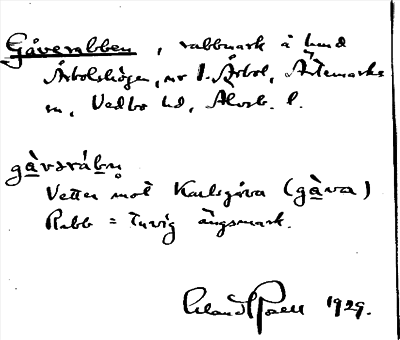 Gåverabben, rabbmark å hmd
Årbolshögen, nr 1. Årbol, Ärtemarks
sn, Vedbo hd, Älvsb. l.
gåvəråbn̥
Vetter mot Karlsgåva (gåva)
Rabb = tuvig ängsmark.
1929.